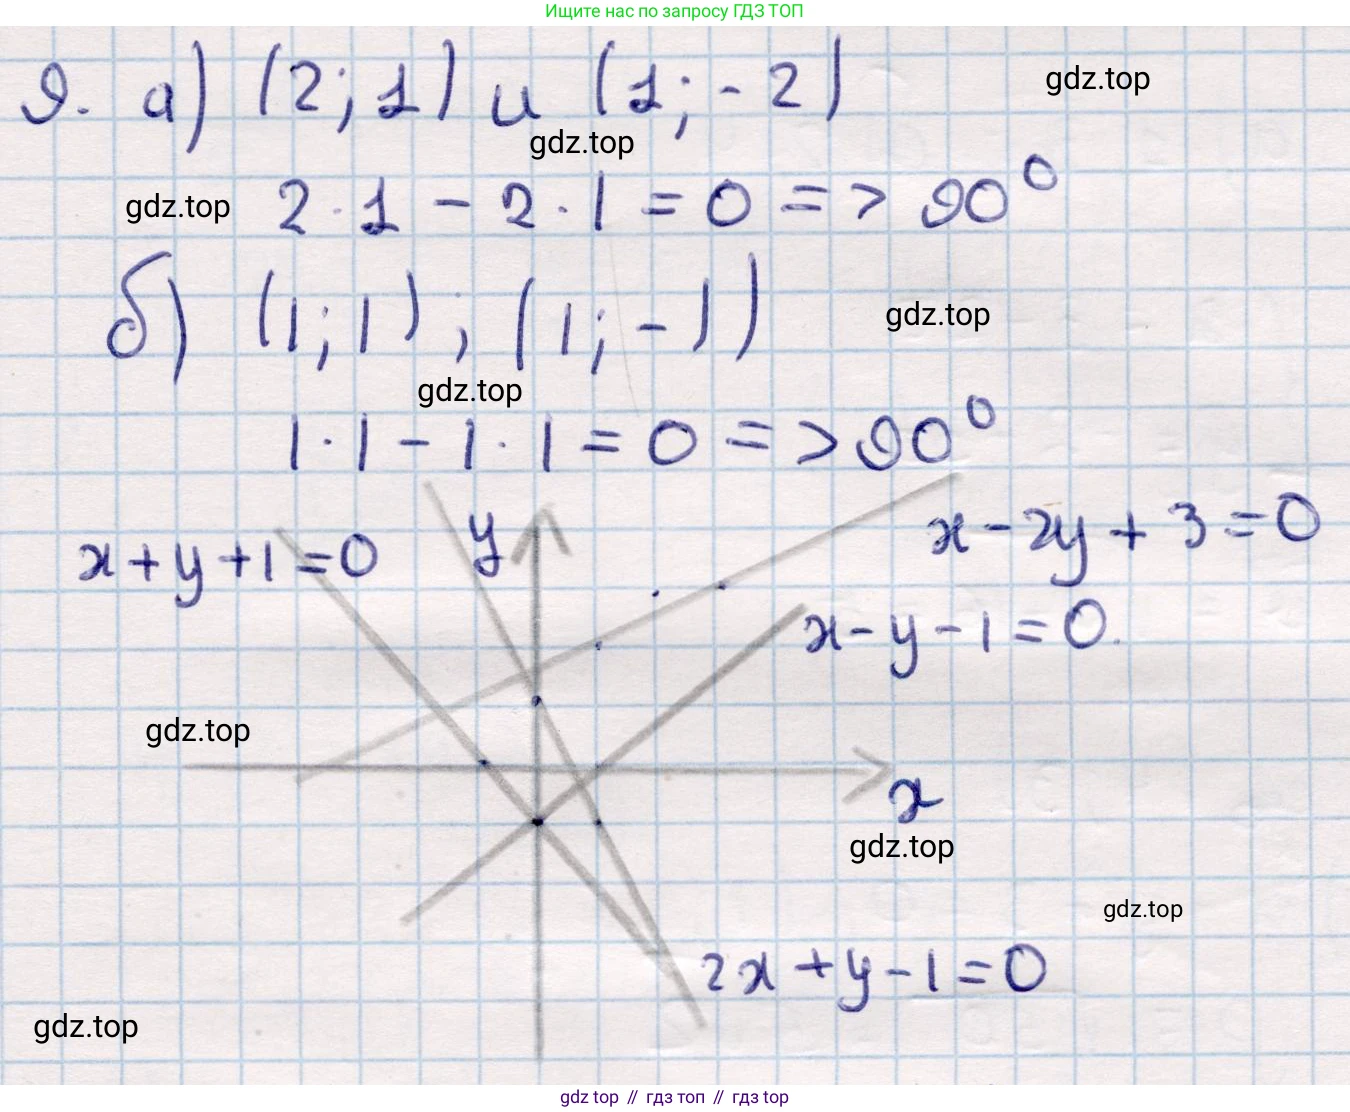 Ищите нас по запросу ГДЗ ТОП
9. а) (2; 1) и (1; -2)
gdz.top
gdz.top
gdz.top
2 · 1 - 2 · 1 = 0 => 90⁰
б) (1; 1), (1; -1)
gdz.top
gdz.top
1 · 1 - 1 · 1 = 0 => 90⁰
x - 2y + 3 = 0
x + y + 1 = 0
y
x - y - 1 = 0.
gdz.top
x
gdz.top
gdz.top
2x + y - 1 = 0
gdz.top
gdz top // гдз топ // gdz top